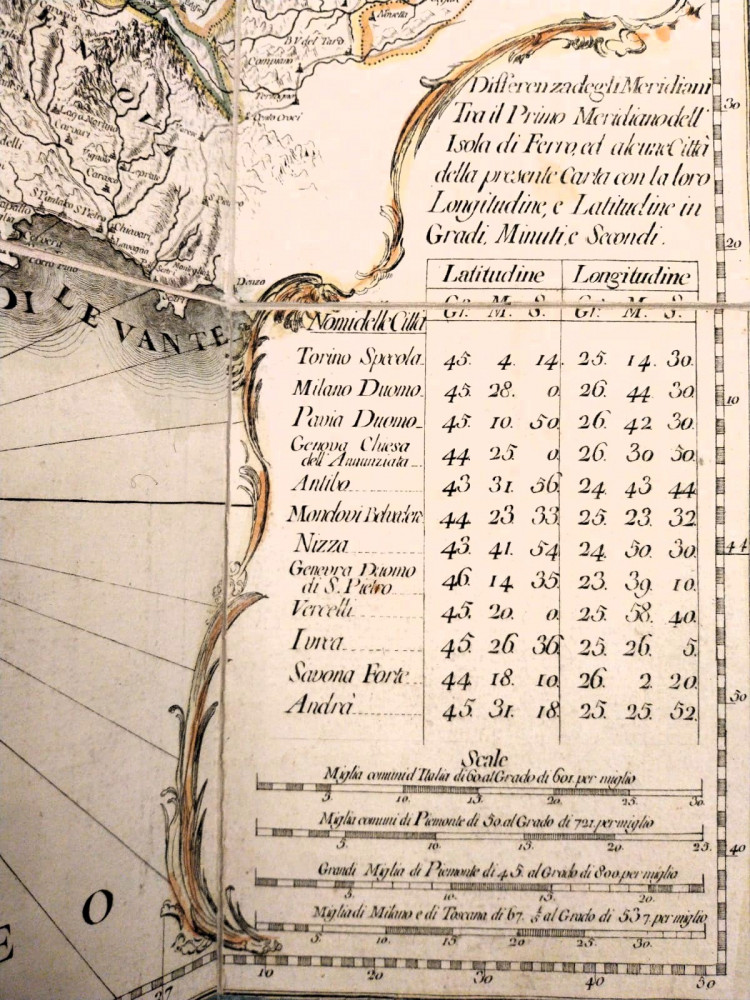 Ninella
BV del Taro
Compiano
Cento Croci
Carcari
S. Pietro
Chiavari
Lavagna
Sestri
Deuzo
DI LEVANTE
Differenza degli Meridiani
Tra il Primo Meridiano dell
Isola di Ferro, ed alcune Città
della presente Carta con la loro
Longitudine, e Latitudine in
Gradi, Minuti, e Secondi.
Latitudine Longitudine
Nomi delle Città Gr. M. S. Gr. M. S.
Torino Specola 45. 4. 14. 25. 14. 30.
Milano Duomo 45. 28. 0. 26. 44. 30.
Pavia Duomo 45. 10. 50. 26. 42. 30.
Genova Chiesa
dell'Annunziata 44 25. 0. 26. 30 50.
Antibo 43 31. 56. 24. 43 44
Mondovi Belvedere 44 23. 33. 25. 23. 32
Nizza 43. 41. 54 24. 50. 30.
Genevra Duomo
di S. Pietro 46. 14 35. 23. 39. 10.
Vercelli 45. 20. 0. 25. 58. 40.
Ivrea 45. 26 36. 25. 26. 5.
Savona Forte 44 18. 10. 26. 2. 20.
Andrà 45. 31. 18. 25. 25. 52.
Scale
Miglia comuni d'Italia di 60. al Grado di 601. per miglio
5. 10. 15. 20. 25. 30.
Miglia comuni di Piemonte di 50. al Grado di 721. per miglio
5. 10. 15. 20. 25.
Grandi Miglia di Piemonte di 45. al Grado di 800. per miglio
5. 10. 15. 20.
Miglia di Milano e di Toscana di 67. al Grado di 537. per miglio
5. 10. 15. 20. 25. 30.
30
20
10
44
50
40
O
E
27 10 20 30 40 50